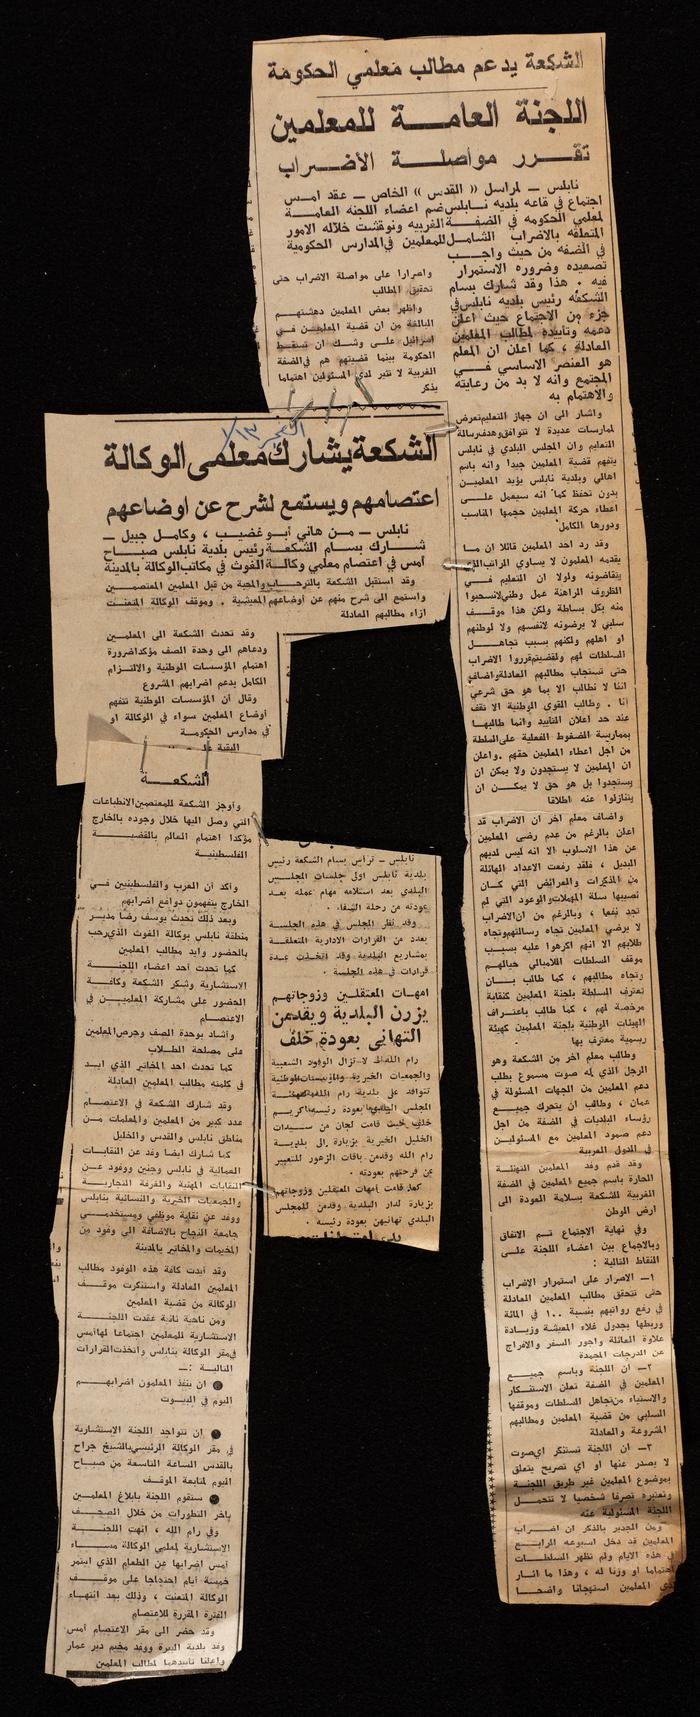 الشكعة يدعم مطالب معلمي الحكومة
اللجنة العامة للمعلمين
تقرر مواصلة الأضراب
نابلس — لمراسل « القدس » الخاص — عقد امس
اجتماع في قاعه بلديه نابلس ضم اعضاء اللجنه العامة
لمعلمي الحكومه في الضفة الغربيه ونوقشت خلاله الامور
المتعلقه بالاضراب الشامل للمعلمين في المدارس الحكومية
في الضفه من حيث واجب
تصعيده وضروره الاستمرار
فيه . هذا وقد شارك بسام
الشكعه رئيس بلديه نابلس في
جزء من الاجتماع حيث اعلن
دعمه وتاييده لمطالب المعلمين
العادلة ، كما اعلن ان المعلم
هو العنصر الاساسي في
المجتمع وانه لا بد من رعايته
والاهتمام به
واشار الى ان جهاز التعليم تعرض
لممارسات عديدة لا تتوافق وهدف رسالة
التعليم وان المجلس البلدي في نابلس
يتفهم قضية المعلمين جيدا وانه باسم
اهالي وبلدية نابلس يؤيد المعلمين
بدون تحفظ كما انه سيعمل على
اعطاء حركة المعلمين حجمها المناسب
ودورها الكامل
وقد رد احد المعلمين قائلا ان ما
يقدمه المعلمون لا يساوي الراتب الذي
يتقاضونه ولولا ان التعليم في
الظروف الراهنة عمل وطني لانسحبوا
منه بكل بساطة ولكن هذا موقف
سلبي لا يرضونه لانفسهم ولا لوطنهم
او اهلهم ولكنهم بسبب تجاهل
السلطات لهم ولقضيتهم قرروا الاضراب
حتى تستجاب مطالبهم العادلة واضاف
اننا لا نطالب الا بما هو حق شرعي
لنا . وطالب القوى الوطنية الا تقف
عند حد اعلان التاييد وانما طالبها
بممارسة الضغوط الفعلية على السلطة
من اجل اعطاء المعلمين حقهم . واعلن
ان المعلمين لا يستجدون ولا يمكن ان
يستجدوا بل هو حق لا يمكن ان
يتنازلوا عنه اطلاقا
واضاف معلم اخر ان الاضراب قد
اعلن بالرغم من عدم رضى المعلمين
عن هذا الاسلوب الا انه ليس لديهم
البديل ، فلقد رفعت الاعداد الهائلة
من المذكرات والعرائض التي كان
نصيبها سلة المهملات والوعود التي لم
تجد نفعا ، وبالرغم من ان الاضراب
لا يرضي المعلمين تجاه رسالتهم وتجاه
طلابهم الا انهم اكرهوا عليه بسبب
موقف السلطات اللامبالي حيالهم
وتجاه مطالبهم ، كما طالب بان
تعترف السلطة بلجنة المعلمين كنقابة
مرخصة لهم ، كما طالب باعتراف
الهيئات الوطنية بلجنة المعلمين كهيئة
رسمية معترف بها
وطالب معلم اخر من الشكعة وهو
الرجل الذي له صوت مسموع بطلب
دعم المعلمين من الجهات المسئولة في
عمان ، وطالب ان يتحرك جميع
رؤساء البلديات في الضفة من اجل
دعم صمود المعلمين مع المسئولين
في الدول العربية
وقد قدم وفد المعلمين التهنئة
الحارة باسم جميع المعلمين في الضفة
الغربية للشكعة بسلامة العودة الى
ارض الوطن
وفي نهاية الاجتماع تم الاتفاق
وبالاجماع بين اعضاء اللجنة على
النقاط التالية :
١— الاصرار على استمرار الاضراب
حتى تتحقق مطالب المعلمين العادلة
في رفع رواتبهم بنسبة ١٠٠ في المائة
وربطها بجدول غلاء المعيشة وزيادة
علاوة العائلة واجور السفر والافراج
عن الدرجات المجمدة
٢— ان اللجنة وباسم جميع
المعلمين في الضفة تعلن الاستنكار
والاستياء من تجاهل السلطات وموقفها
السلبي من قضية المعلمين ومطالبهم
المشروعة والعادلة
٣— ان اللجنة تستنكر اي صوت
لا يصدر عنها او اي تصريح يتعلق
بموضوع المعلمين غير طريق اللجنة
وتعتبره تصرفا شخصيا لا تتحمل
اللجنة المسئولية عنه
ومن الجدير بالذكر ان اضراب
المعلمين قد دخل اسبوعه الرابع
في هذه الايام ولم تظهر السلطات
اهتماما او وزنا له ، وهذا ما اثار
لدى المعلمين استهجانا واضحا
واصرارا على مواصلة الاضراب حتى
تحقيق المطالب
واظهر بعض المعلمين دهشتهم
البالغة من ان قضية المعلمين في
اسرائيل على وشك ان تسقط
الحكومة بينما قضيتهم هم في الضفة
الغربية لا تثير لدى المسئولين اهتماما
يذكر
الفجر ١٣/١
الشكعة يشارك معلمي الوكالة
اعتصامهم ويستمع لشرح عن اوضاعهم
نابلس — من هاني أبو غضيب ، وكامل جبيل —
شارك بسام الشكعة رئيس بلدية نابلس صباح
أمس في اعتصام معلمي وكالة الغوث في مكاتب الوكالة بالمدينة
وقد استقبل الشكعة بالترحاب والمحبة من قبل المعلمين المعتصمين
واستمع الى شرح منهم عن أوضاعهم المعيشية . وموقف الوكالة المتعنت
ازاء مطالبهم العادلة
وقد تحدث الشكعة الى المعلمين
ودعاهم الى وحدة الصف مؤكدا ضرورة
اهتمام المؤسسات الوطنية والالتزام
الكامل بدعم اضرابهم المشروع
وقال أن المؤسسات الوطنية تتفهم
أوضاع المعلمين سواء في الوكالة او
في مدارس الحكومة
البقية
الشكعة
وأوجز الشكعة للمعتصمين الانطباعات
التي وصل اليها خلال وجوده بالخارج
مؤكدا اهتمام العالم بالقضية
الفلسطينية
وأكد أن العرب والفلسطينيين في
الخارج يتفهمون دوافع اضرابهم
وبعد ذلك تحدث يوسف رضا مدير
منطقة نابلس بوكالة الغوث الذي رحب
بالحضور وأيد مطالب المعلمين
كما تحدث أحد اعضاء اللجنة
الاستشارية وشكر الشكعة وكافة
الحضور على مشاركة المعلمين في
الاعتصام
وأشاد بوحدة الصف وحرص المعلمين
على مصلحة الطلاب
كما تحدث احد المخاتير الذي ايد
في كلمته مطالب المعلمين العادلة
وقد شارك الشكعة في الاعتصام
عدد كبير من المعلمين والمعلمات من
مناطق نابلس والقدس والخليل
كما شارك ايضا وفد عن النقابات
العمالية في نابلس وجنين ووفود عن
النقابات المهنية والغرفة التجارية
والجمعيات الخيرية والنسائية بنابلس
ووفد عن نقابة موظفي ومستخدمي
جامعة النجاح بالاضافة الى وفود من
المخيمات والمخاتير بالمدينة
وقد أبدت كافة هذه الوفود مطالب
المعلمين العادلة واستنكرت موقف
الوكالة من قضية المعلمين
ومن ناحية ثانية عقدت اللجنة
الاستشارية للمعلمين اجتماعا لها أمس
في مقر الوكالة بنابلس واتخذت القرارات
التالية :—
● ان ينفذ المعلمون اضرابهم
اليوم في البيوت
● ان تتواجد اللجنة الاستشارية
في مقر الوكالة الرئيسي بالشيخ جراح
بالقدس الساعة التاسعة من صباح
اليوم لمتابعة الموقف
● ستقوم اللجنة بابلاغ المعلمين
بآخر التطورات من خلال الصحف
وفي رام الله ، انهت اللجنة
الاستشارية لمعلمي الوكالة مساء
أمس اضرابها عن الطعام الذي استمر
خمسة أيام احتجاجا على موقف
الوكالة المتعنت ، وذلك بعد انتهاء
الفترة المقررة للاعتصام
وقد حضر الى مقر الاعتصام أمس
وفد بلدية البيرة ووفد مخيم دير عمار
واعلنا تأييدهما لمطالب المعلمين
نابلس — ترأس بسام الشكعة رئيس
بلدية نابلس اول جلسات المجلس
البلدي بعد استلامه مهام عمله بعد
عودته من رحلة الشفاء .
وقد نظر المجلس في هذه الجلسة
بعدد من القرارات الادارية المتعلقة
بمشاريع البلدية وقد اتخذت عدة
قرارات في هذه الجلسة .
امهات المعتقلين وزوجاتهم
يزرن البلدية ويقدمن
التهاني بعودة خلف
رام الله لا تزال الوفود الشعبية
والجمعيات الخيرية والمؤسسات الوطنية
تتوافد على بلدية رام الله لتهنئة
المجلس البلدي بعودة رئيسه كريم
خلف حيث قامت لجان من سيدات
الخليل الخيرية بزيارة الى بلدية
رام الله وقدمن باقات الزهور للتعبير
عن فرحتهم بعودته .
كما قامت امهات المعتقلين وزوجاتهم
بزيارة لدار البلدية وقدمن للمجلس
البلدي تهانيهن بعودة رئيسه .